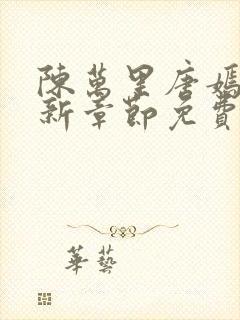 陳萬里唐嫣
新章節免費
華藝